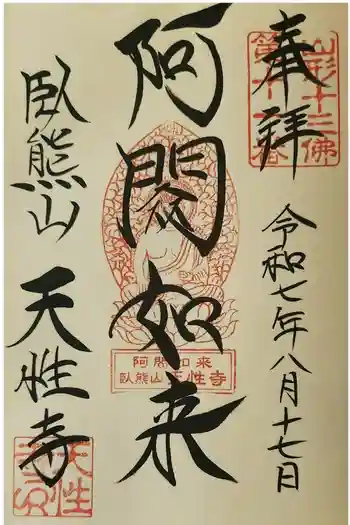 奉拝
令和七年八月十七日
阿閦如来
臥熊山 天性寺
山形十三佛
阿閦如来
臥熊山 天性寺